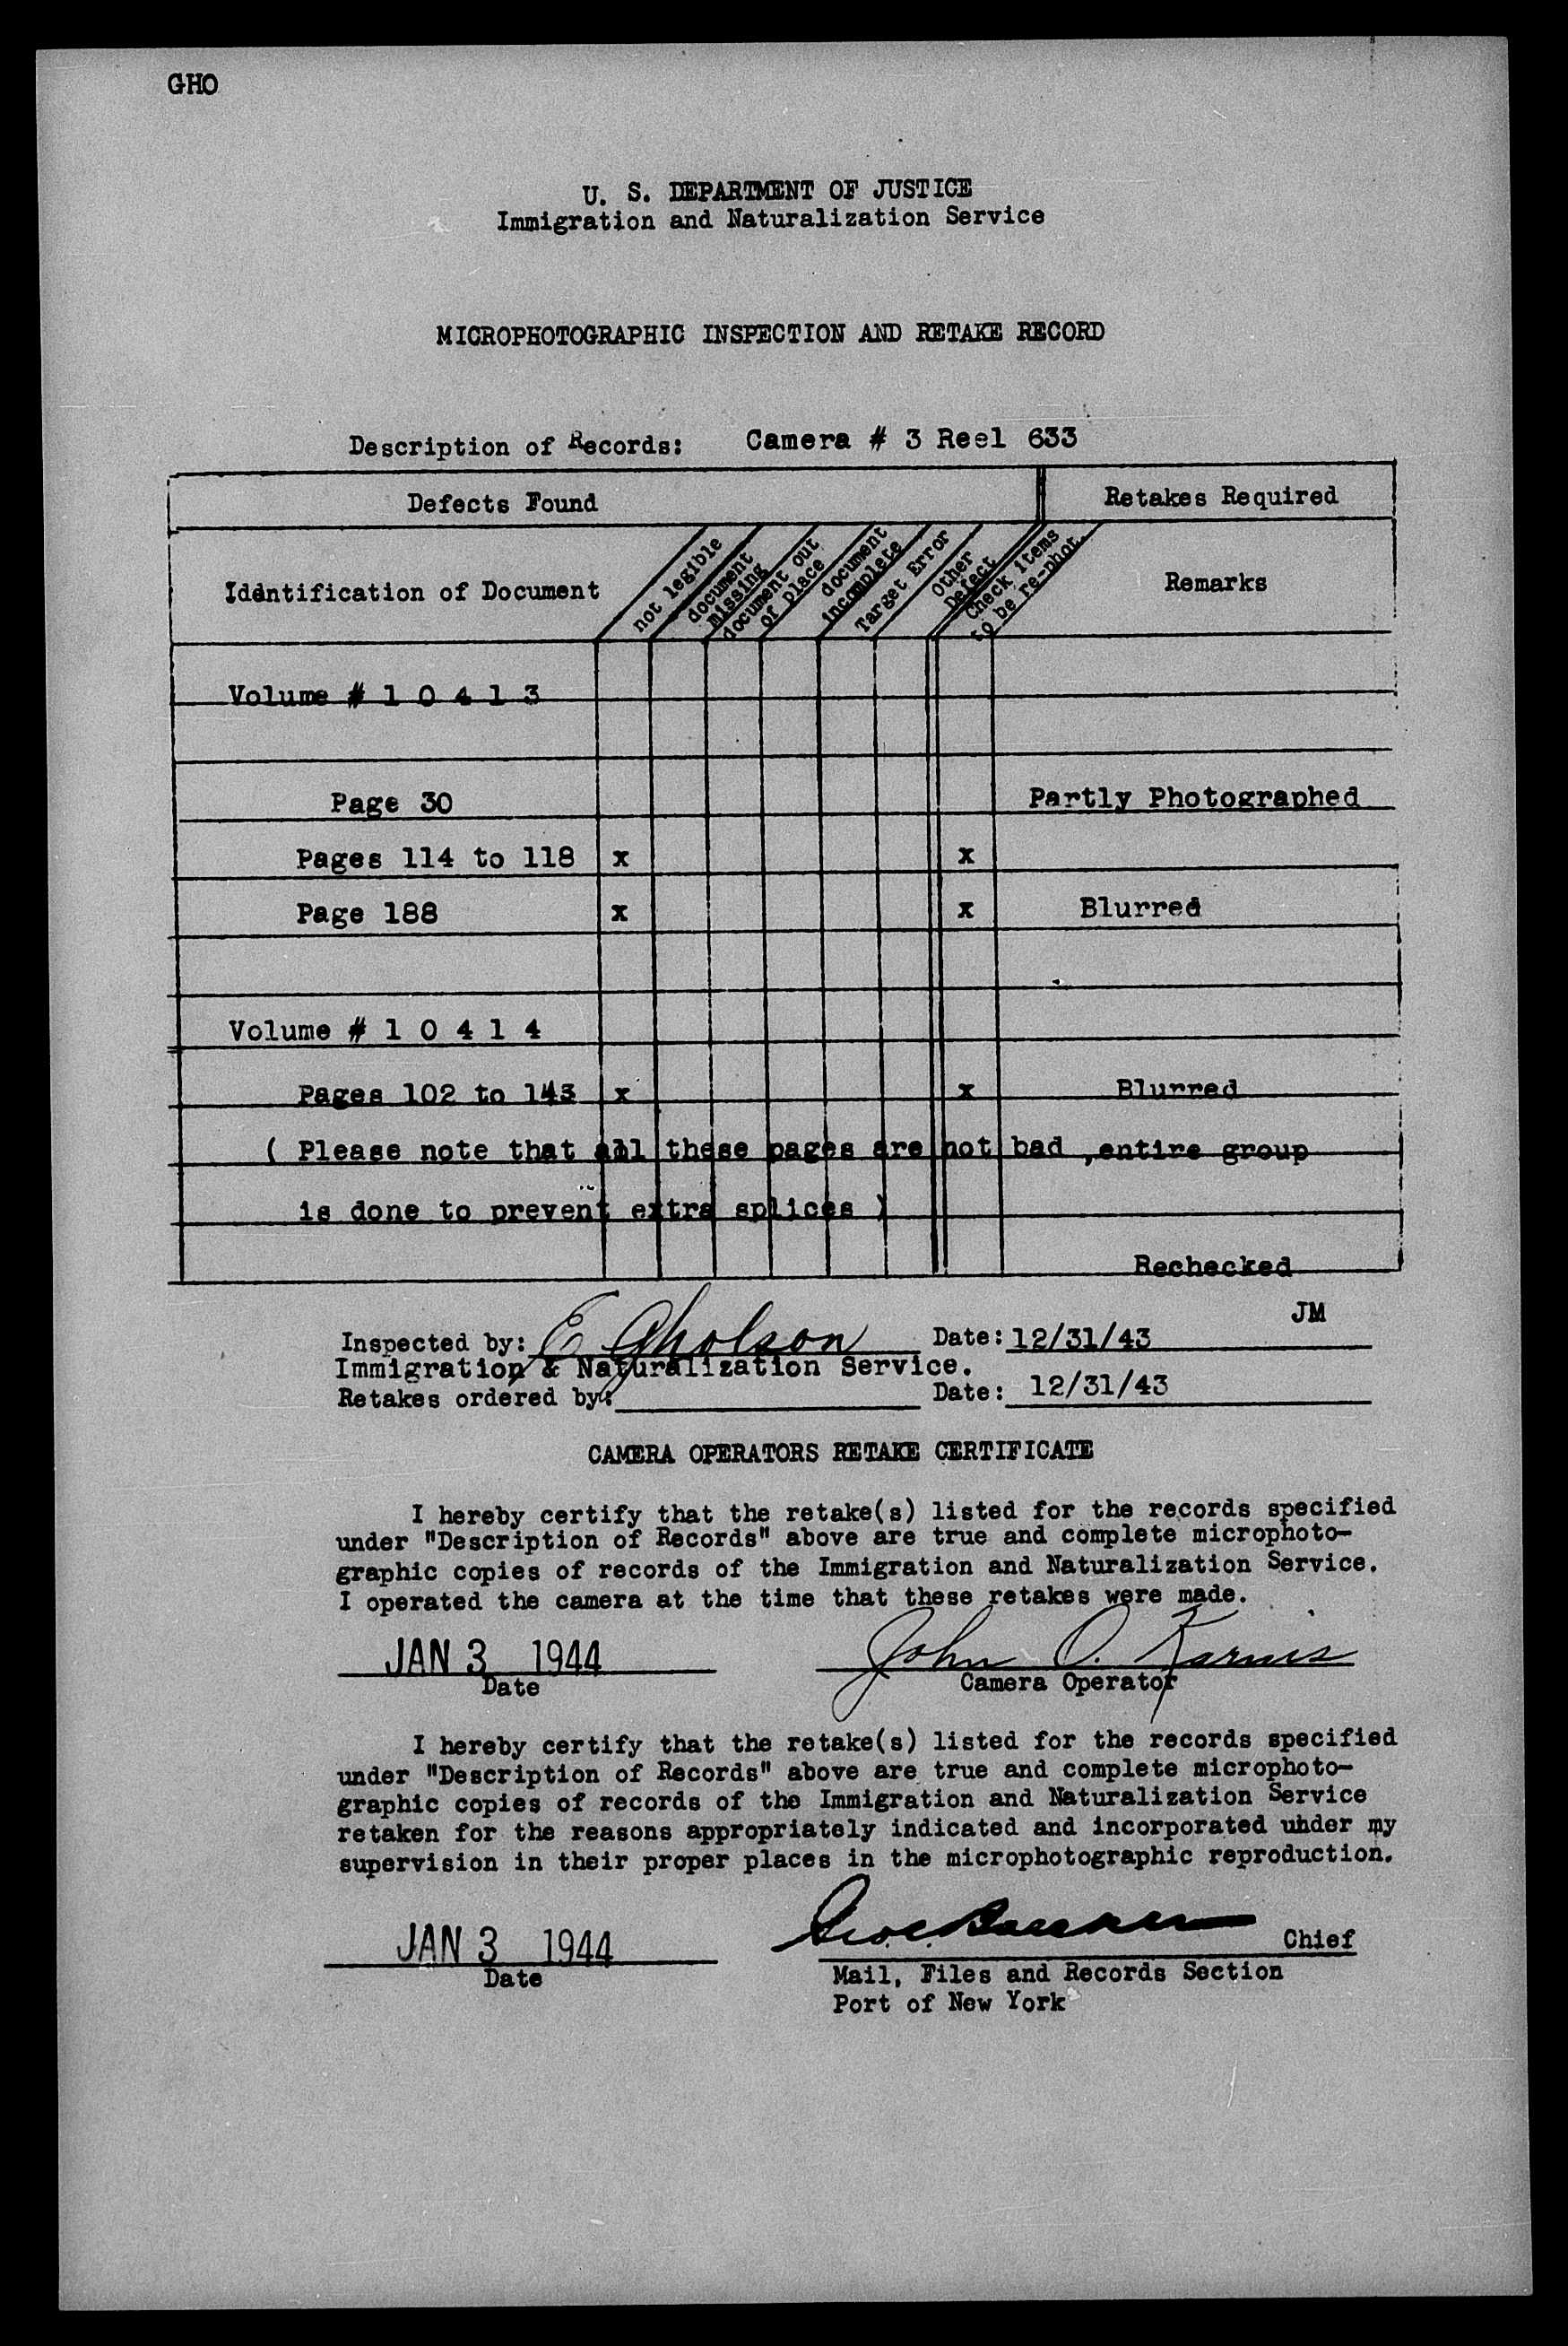 GHO
U. S. DEPARTMENT OF JUSTICE
Immigration and Naturalization Service
MICROPHOTOGRAPHIC INSPECTION AND RETAKE RECORD
Description of Records: Camera # 3 Reel 633
Defects Found Retakes Required
Identification of Document not legible document missing document out of place document incomplete Target Error Other Defect Check items to be re-phot. Remarks
Volume # 1 0 4 1 3
Page 30 Partly Photographed
Pages 114 to 118 x x
Page 188 x x Blurred
Volume # 1 0 4 1 4
Pages 102 to 143 x x Blurred
( Please note that all these pages are not bad ,entire group
is done to prevent extra splices )
Rechecked
JM
Inspected by: E Gholson Date: 12/31/43
Immigration & Naturalization Service.
Retakes ordered by: Date: 12/31/43
CAMERA OPERATORS RETAKE CERTIFICATE
I hereby certify that the retake(s) listed for the records specified
under "Description of Records" above are true and complete microphoto-
graphic copies of records of the Immigration and Naturalization Service.
I operated the camera at the time that these retakes were made.
JAN 3 1944 John O. Karnis
Date Camera Operator
I hereby certify that the retake(s) listed for the records specified
under "Description of Records" above are true and complete microphoto-
graphic copies of records of the Immigration and Naturalization Service
retaken for the reasons appropriately indicated and incorporated under my
supervision in their proper places in the microphotographic reproduction.
JAN 3 1944 Chief
Date Mail, Files and Records Section
Port of New York